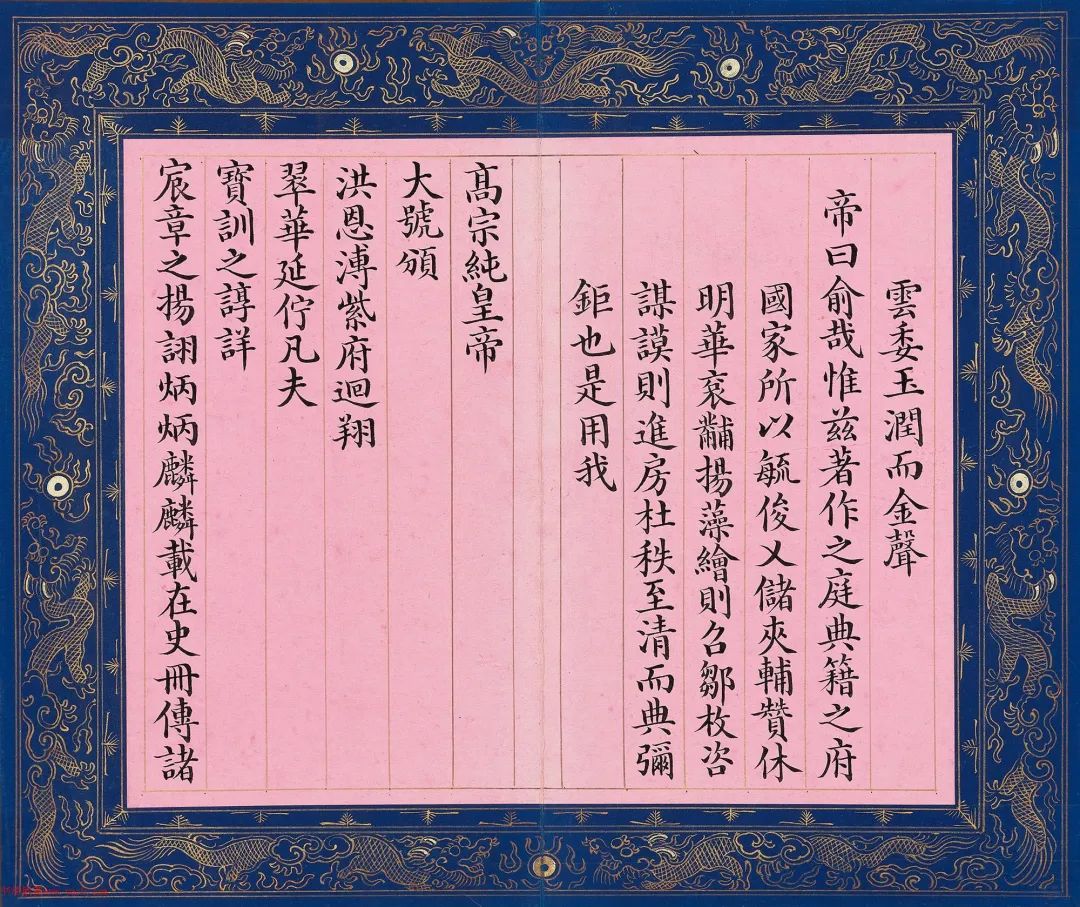 雲委玉潤而金聲
帝曰俞哉惟兹著作之庭典籍之府
國家所以毓俊乂儲夾輔贊休
明華衮黼揚藻繪則召鄒枚咨
謀謨則進房杜秩至清而典彌
鉅也是用我
髙宗純皇帝
大號頒
洪恩溥紫府迴翔
翠華延佇凡夫
寶訓之諄詳
宸章之揚詡炳炳麟麟載在史冊傳諸